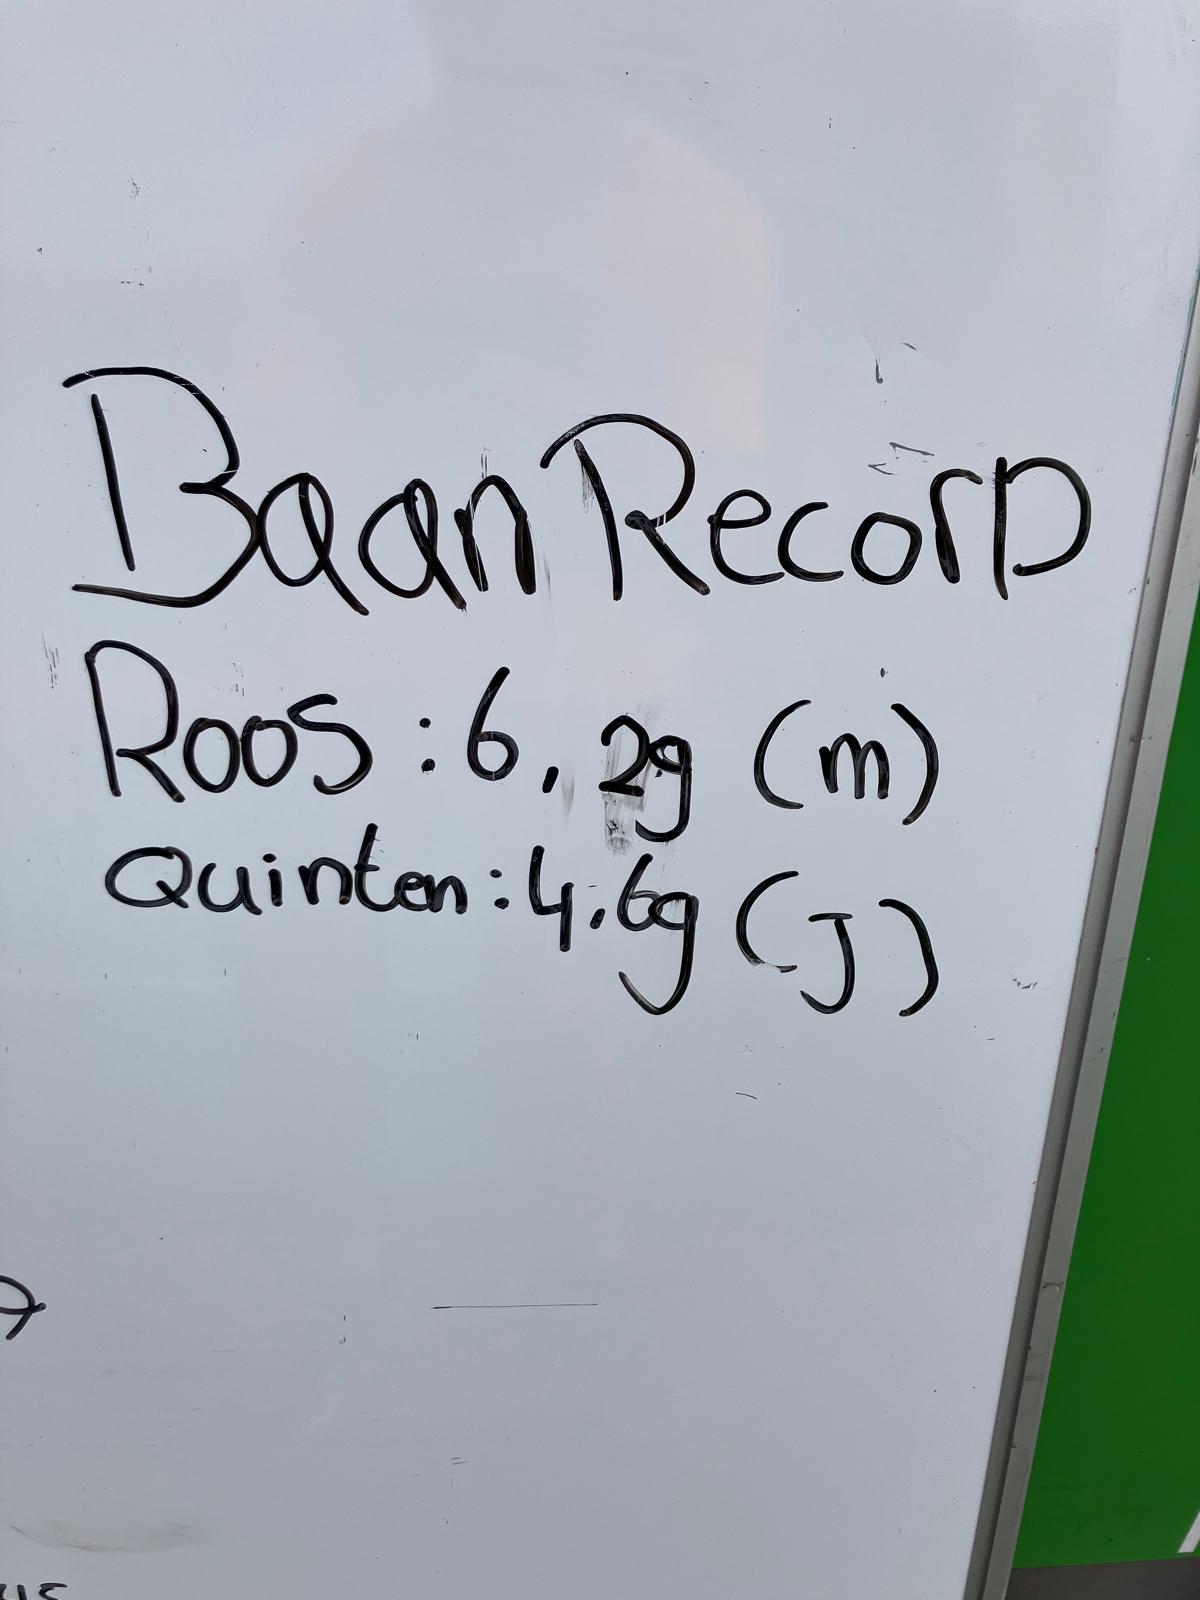 Baan Record
Roos : 6, 29 (m)
Quinten : 4,69 (J)